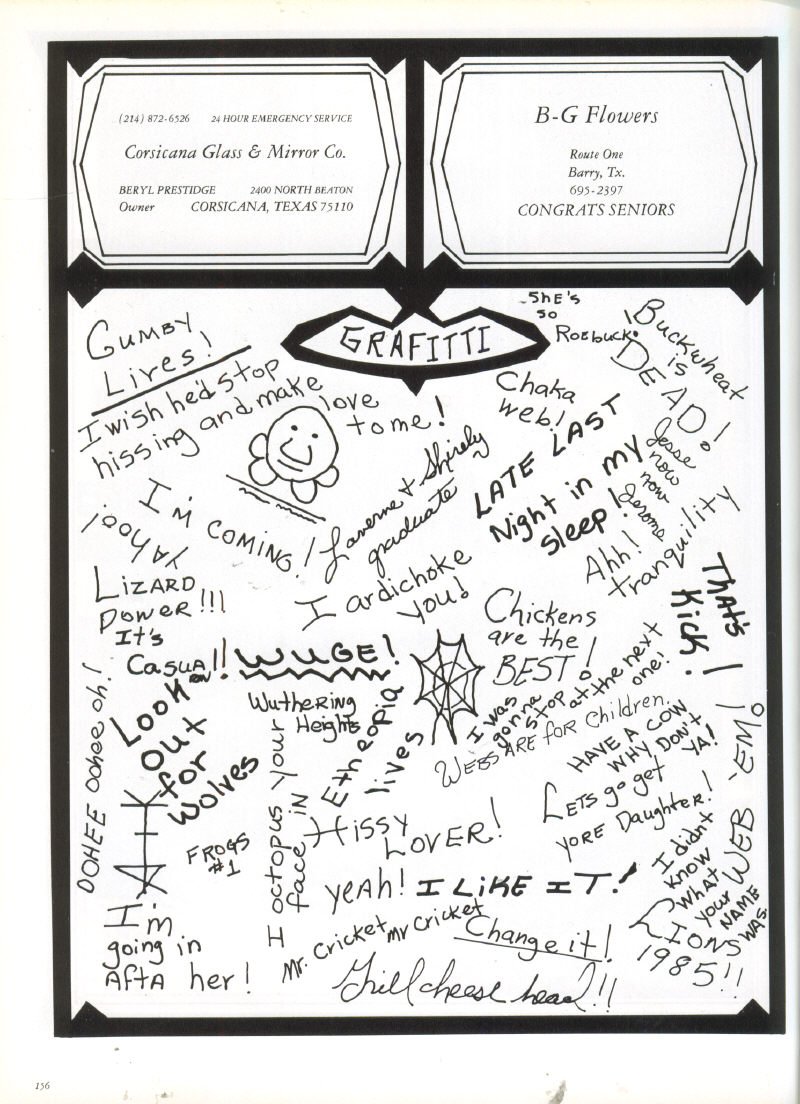 (214) 872-6526 24 HOUR EMERGENCY SERVICE
Corsicana Glass & Mirror Co.
BERYL PRESTIDGE 2400 NORTH BEATON
Owner CORSICANA, TEXAS 75110
B-G Flowers
Route One
Barry, Tx.
695-2397
CONGRATS SENIORS
GRAFITTI
GUMBY
Lives!
She's
so
Roebuck.
!Buckwheat
is
DEAD!
I wish he'd stop
hissing and make love
to me!
Chaka
web!
LATE LAST
Night in my
sleep!
Jesse
now
now
Jerome
I'm COMING!
Laverne + Shirely
graduate
Yahoo!
Ahh!
tranquility
LIZARD
POWER!!!
I ardichoke
you!
That's
Kick!
It's
CasuAl!!
WUGE!
Chickens
are the
BEST!
Look
out
for
wolves
Wuthering
Heights
Etheopia
lives
I was
gonna
stop
at the next
one!
WEBS ARE FOR Children.
OOHEE oohee oh!
HAVE A COW
WHY DON'T
YA!
I octopus your
face IN
FROGS
#1
Hissy
LOVER!
LETS go get
YORE Daughter!
WEB -EM!
I didnt
know
WHAT
your
NAME
WAS
YeAh! I LIKE IT!
I'm
going in
AftA her!
Mr. Cricket Mr Cricket
Change it!
LIONS
1985!!
Grill cheese head!!
156